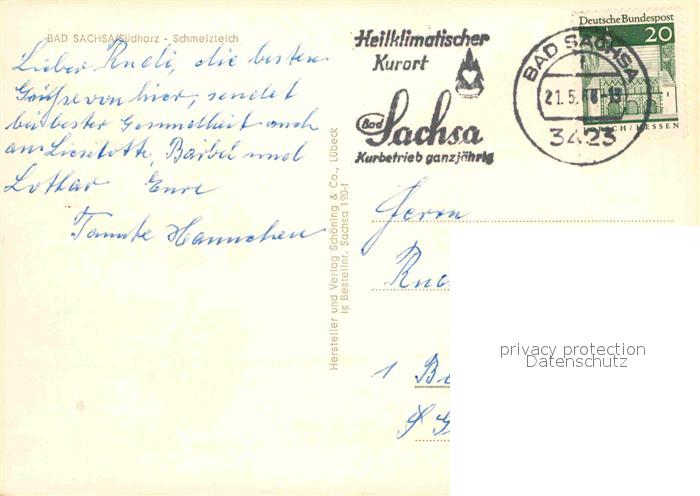 BAD SACHSA/Südharz - Schmelzteich
Lieber Rudi, die besten
Grüße von hier, sendet
bei bester Gesundheit auch
an Liesilotte, Bärbel und
Lothar Eure
Tannte Hannchen
Hersteller und Verlag Schöning & Co., Lübeck
is Bestellnr. Sachsa 190-f
Heilklimatischer
Kurort
Bad Sachsa
Kurbetrieb ganzjährig
BAD SACHSA
21.5.
3423
Deutsche Bundespost
20
CH/HESSEN
Herrn
Ru
1 Be
privacy protection
Datenschutz